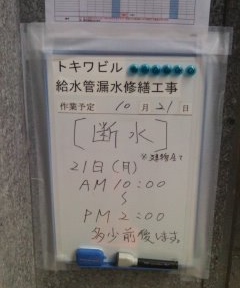 トキワビル
給水管漏水修繕工事
作業予定 10月21日
[断水]
21日(月)
AM 10:00
〜
PM 2:00
多少前後します。